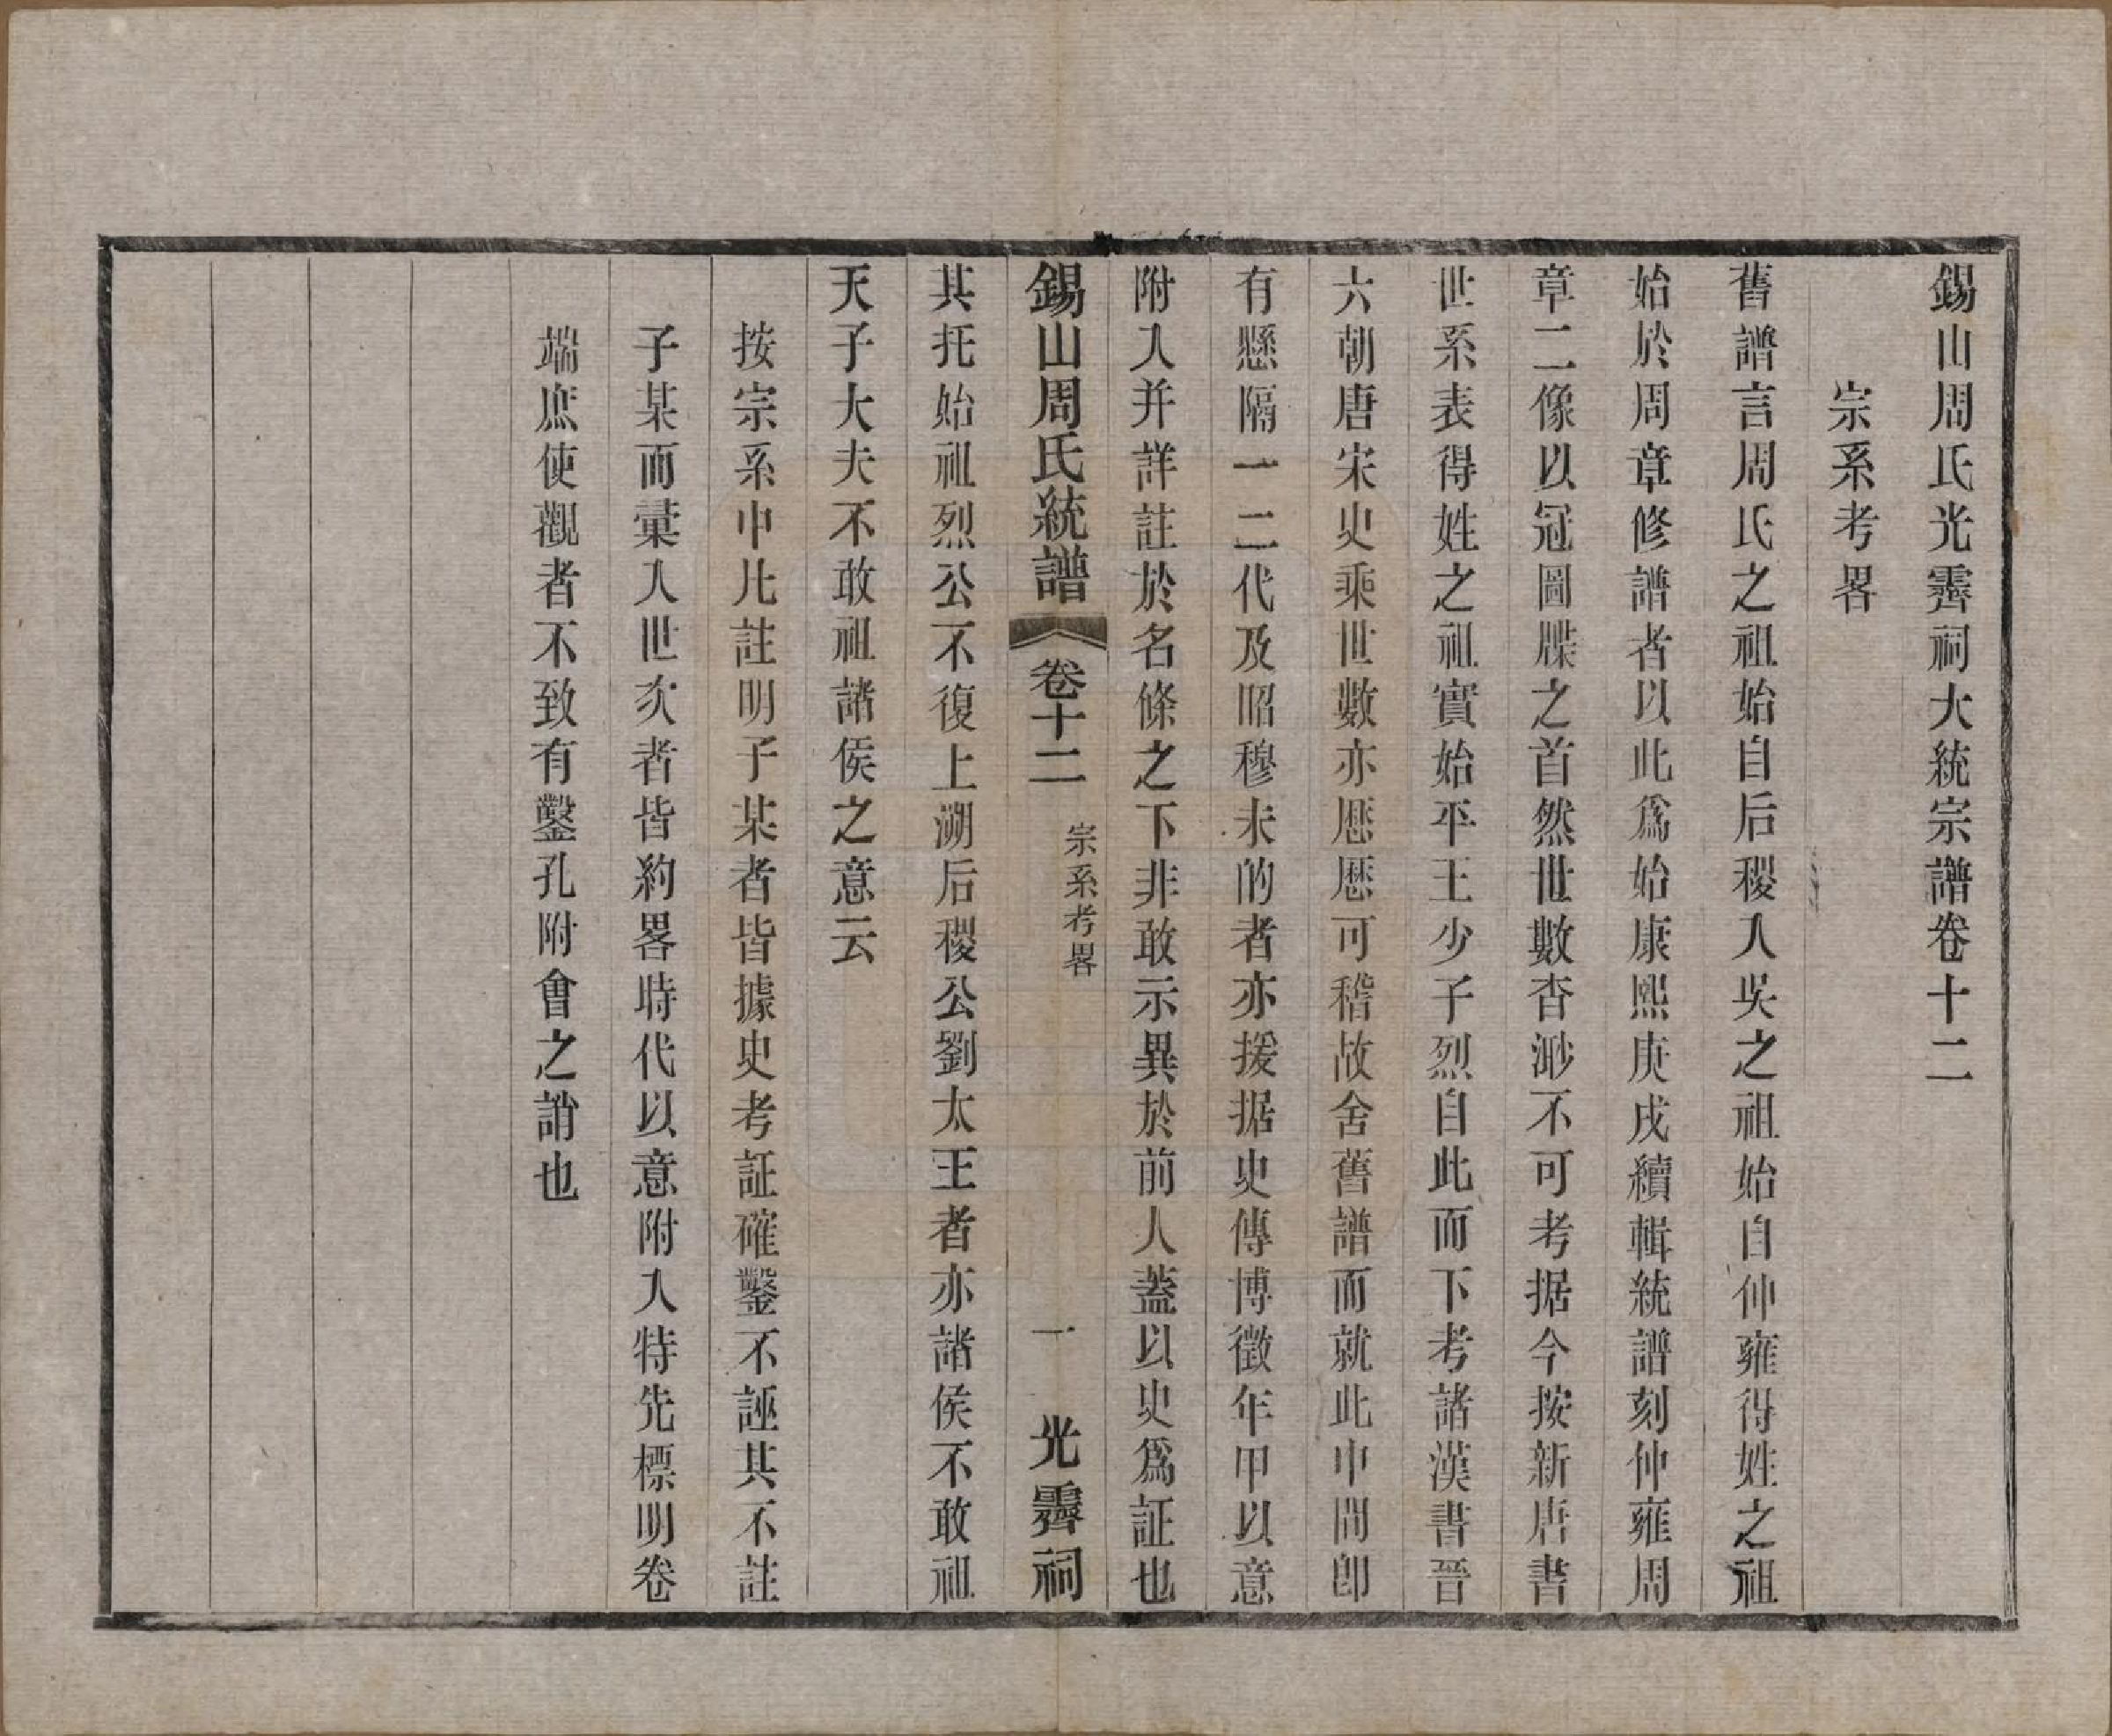 錫山周氏光霽祠大統宗譜卷十二
宗系考畧
舊譜言周氏之祖始自后稷入吳之祖始自仲雍得姓之祖
始於周章修譜者以此爲始康熙庚戌續輯統譜刻仲雍周
章二像以冠圖牒之首然世數杳渺不可考据今按新唐書
世系表得姓之祖實始平王少子烈自此而下考諸漢書晉
六朝唐宋史乘世數亦歷歷可稽故舍舊譜而就此中間卽
有懸隔一二代及昭穆未的者亦援据史傳博徵年甲以意
附入并詳註於名條之下非敢示異於前人蓋以史爲証也
錫山周氏統譜 卷十二 宗系考畧 一 光霽祠
其托始祖烈公不復上溯后稷公劉太王者亦諸侯不敢祖
天子大夫不敢祖諸侯之意云
按宗系中凡註明子某者皆據史考証確鑿不誣其不註
子某而彙入世次者皆約畧時代以意附入特先標明卷
端庶使觀者不致有鑿孔附會之誚也